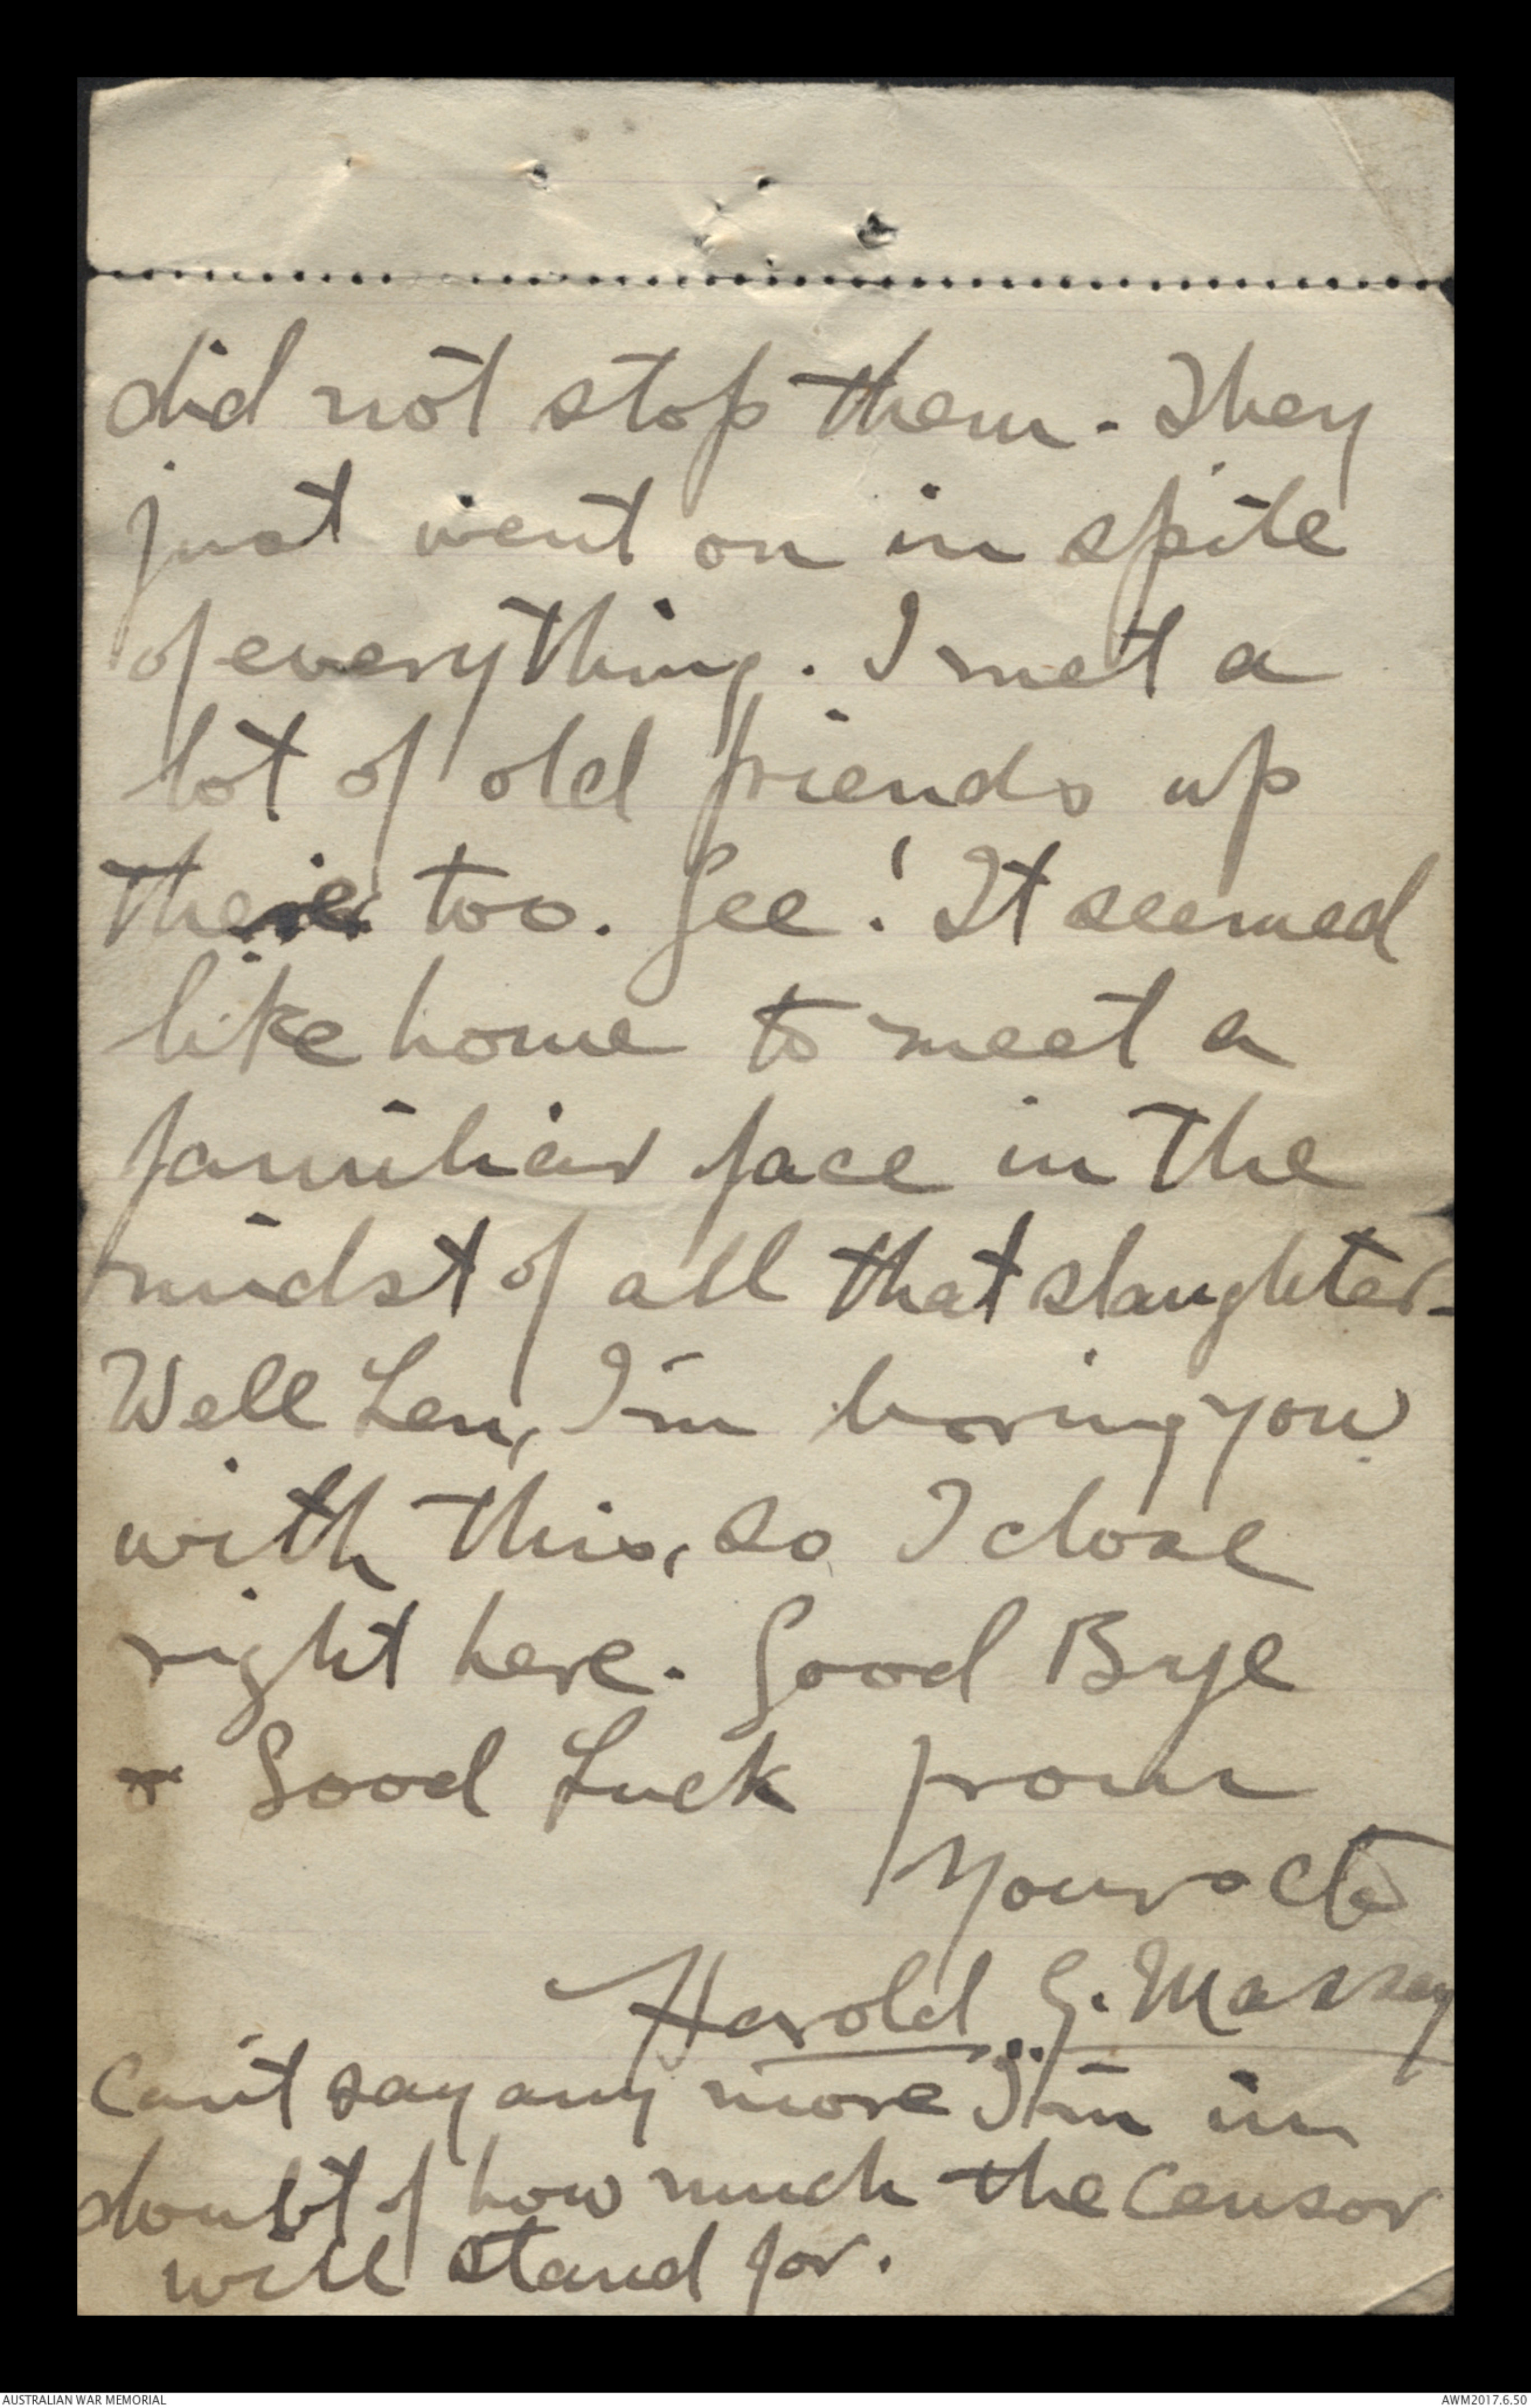 did not stop them. They
just went on in spite
of everything. I met a
lot of old friends up
there too. Gee! It seemed
like home to meet a
familiar face in the
midst of all that slaughter.
Well Len, I'm boring you
with this, so I close
right here. Good Bye
& Good Luck from
Yours etc
Harold G. Massey
Can't say any more I'm in
doubt of how much the Censor
will stand for.
AUSTRALIAN WAR MEMORIAL
AWM2017.6.50